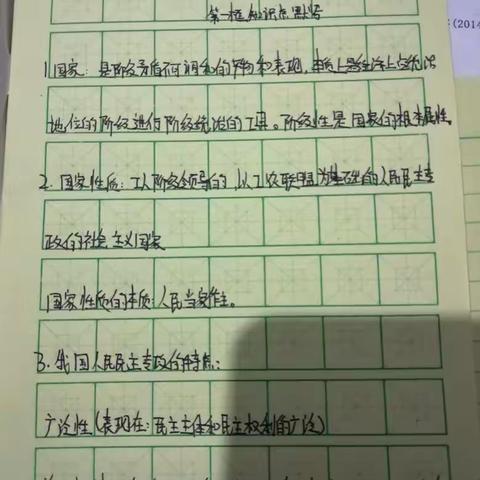 第一框知识点默写
:(2014
1.国家:是阶级矛盾不可调和的产物和表现,本质上是经济上占统治
地位的阶级进行阶级统治的工具。阶级性是国家的根本属性
2.国家性质:工人阶级领导的,以工农联盟为基础的人民民主专
政的社会主义国家
国家性质的本质:人民当家作主。
3.我国人民民主专政的特点:
广泛性(表现在:民主主体和民主权利的广泛)